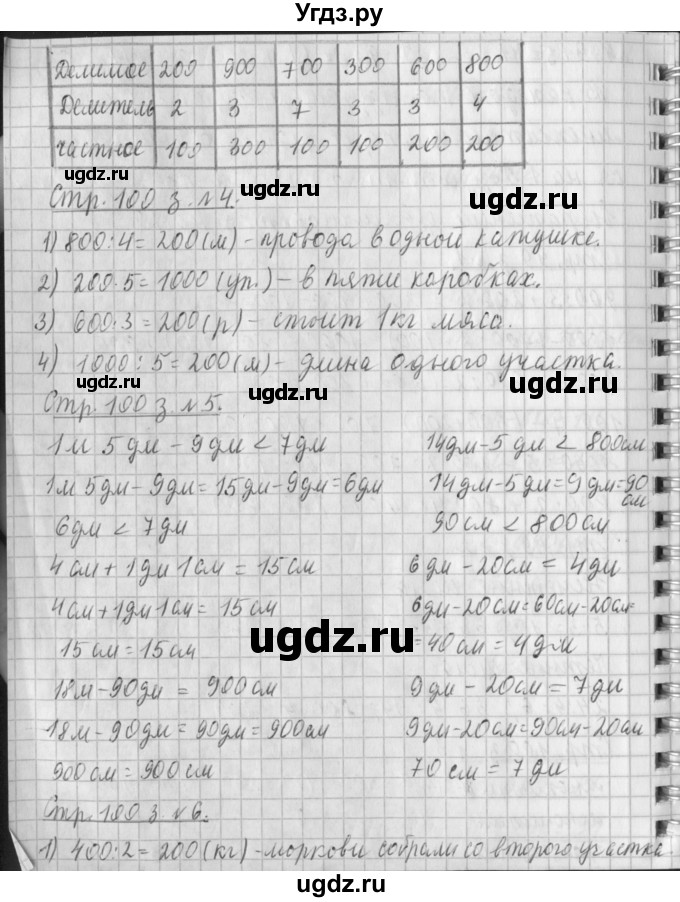 Угдз.ру
Делимое 200 900 700 300 600 800
Делитель 2 3 7 3 3 4
частное 100 300 100 100 200 200
ugdz.ru ugdz.ru
Стр. 100 з. №4.
ugdz.ru
1) 800:4=200(м) - провода в одной катушке.
2) 200·5=1000(уп.) - в пяти коробках.
ugdz.ru ugdz.ru
3) 600:3=200(р) - стоит 1кг мяса.
4) 1000:5=200(м) - длина одного участка.
ugdz.ru ugdz.ru
Стр. 100 з. №5.
1м 5дм - 9дм < 7дм
1м 5дм - 9дм = 15дм - 9дм = 6дм
6дм < 7дм
4см + 1дм 1см = 15см
4см + 1дм 1см = 15см
15см = 15см
18м - 90дм = 900см
18м - 90дм = 90дм = 900см
900см = 900см
14дм - 5дм < 800см
14дм - 5дм = 9дм = 90
см
90см < 800см
6дм - 20см = 4дм
6дм - 20см = 60см - 20см=
=40см = 4дм
9дм - 20см = 7дм
9дм - 20см = 90см - 20см
70см = 7дм
ugdz.ru ugdz.ru
ugdz.ru ugdz.ru
ugdz.ru
ugdz.ru ugdz.ru
ugdz.ru ugdz.ru
Стр. 100 з. №6.
ugdz.ru ugdz.ru
1) 400:2=200(кг) - моркови собрали со второго участка.
ugdz.ru